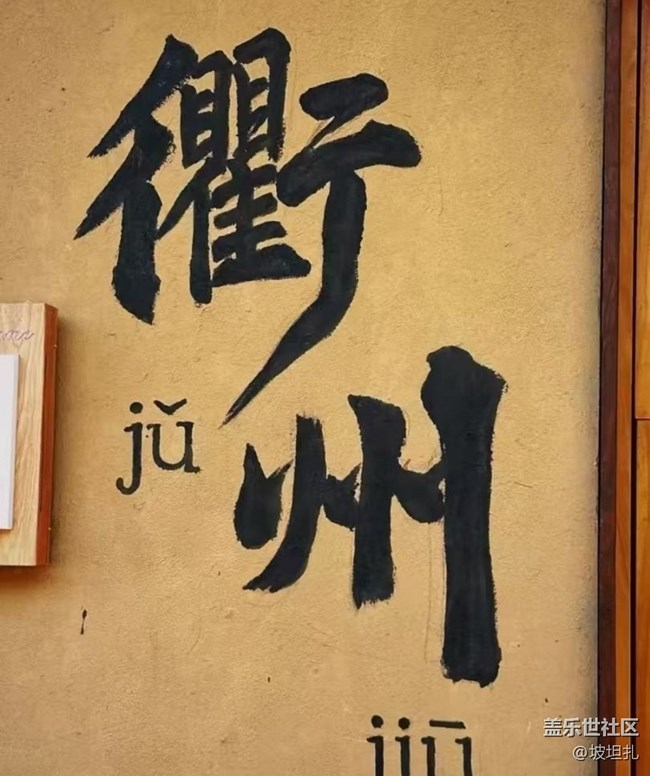 衢
jǔ
州
jiū
盖乐世社区
@坡坦扎